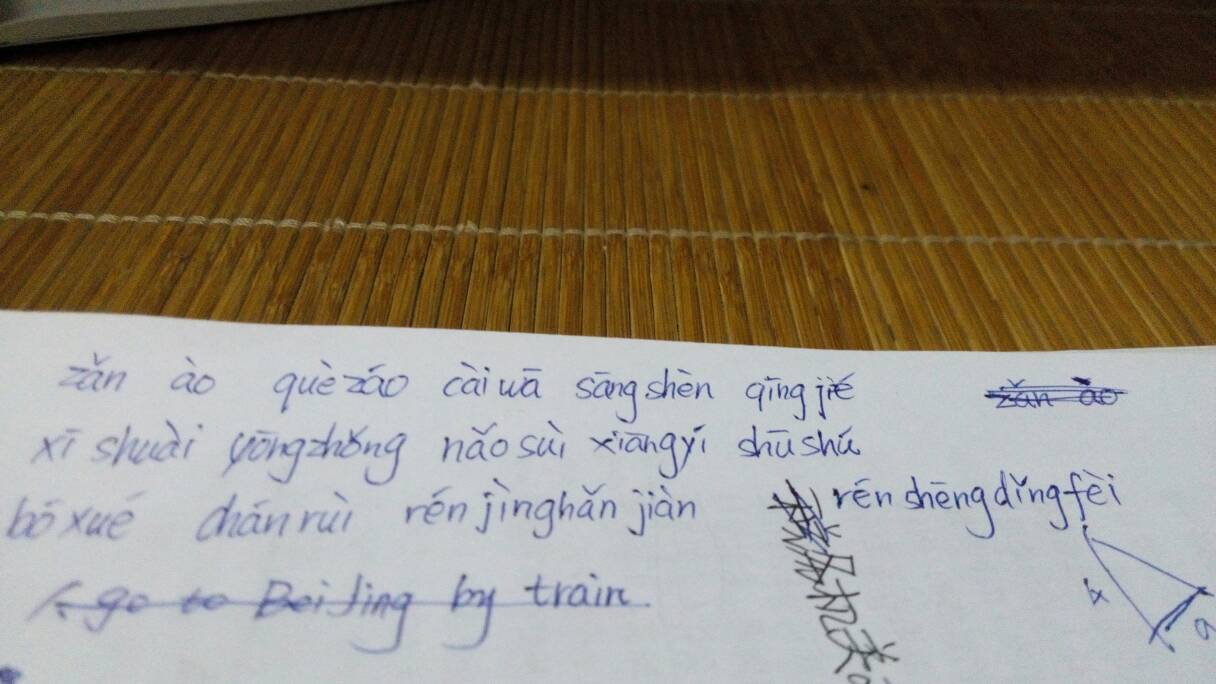 zǎn ào què záo cài wā sāng shèn qīng jié
xī shuài yōng zhǒng nǎo suì xiāng yí shū shú
bó xué chán ruì rén jì hǎn jiàn rén shēng dǐng fèi
go to Beijing by train